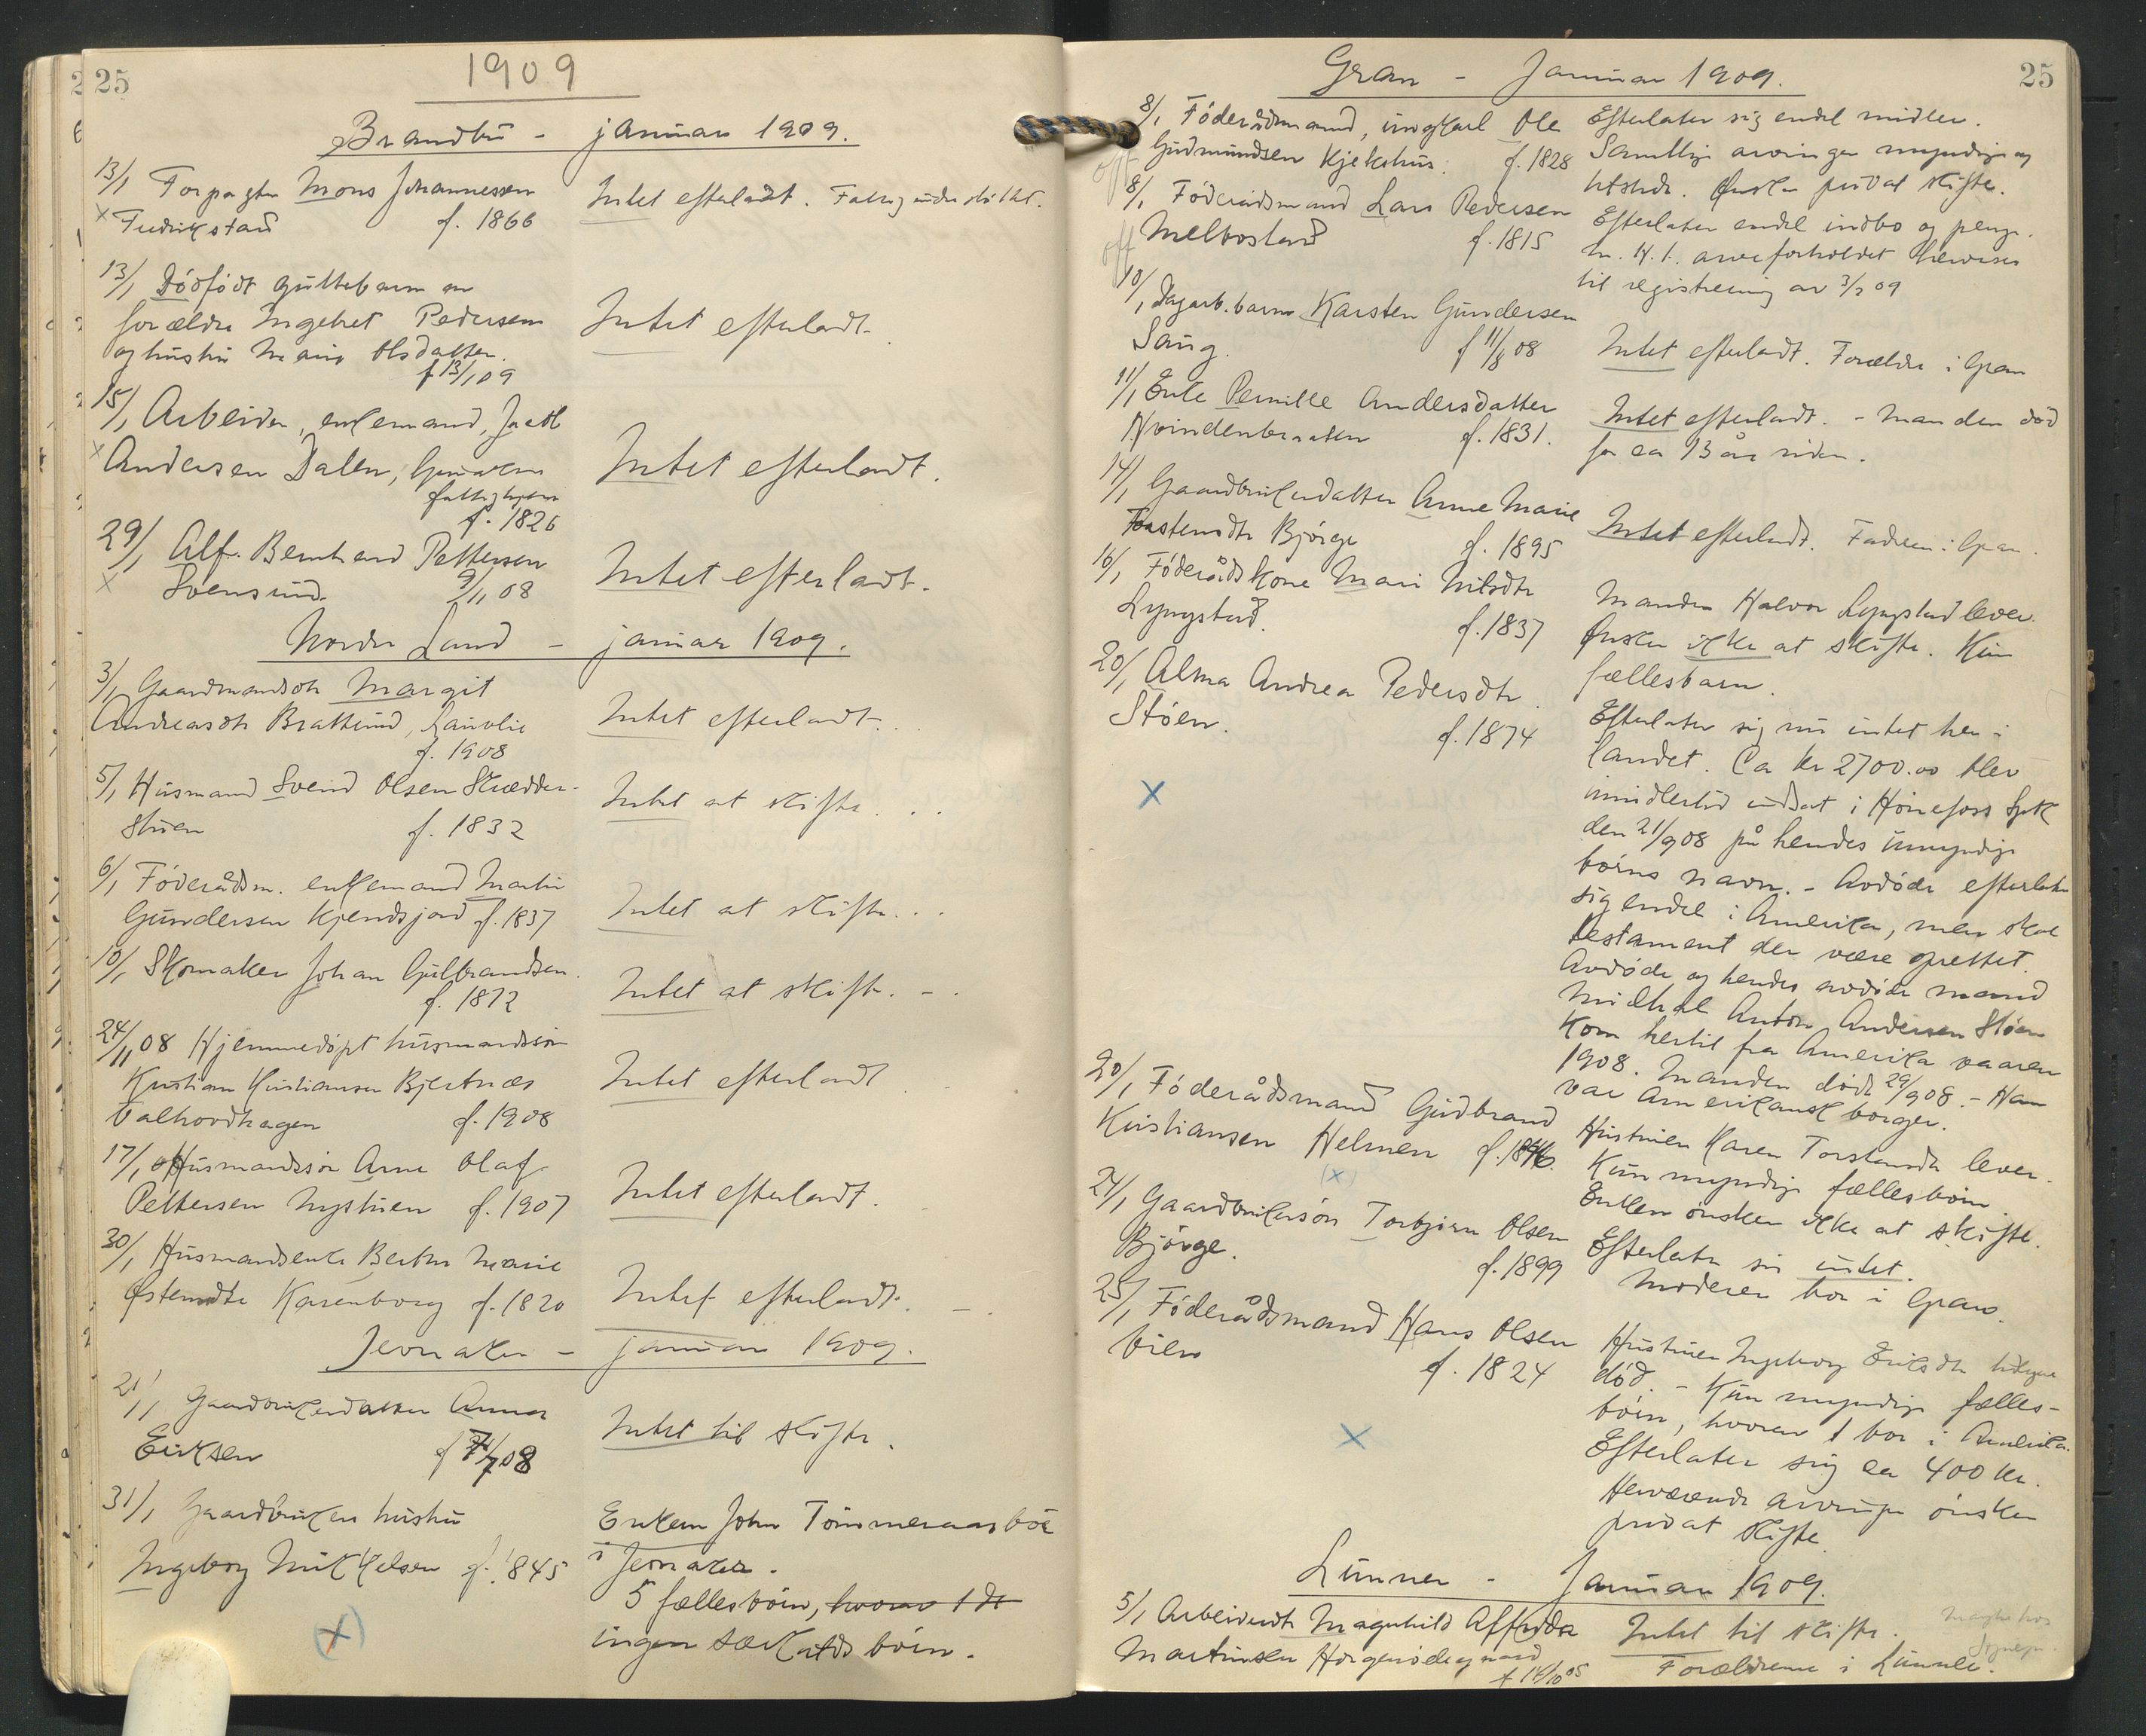 25
1909
Brandbu - januar 1909.
13/1 Forpagter Mons Johannessen
x Fredrikstad f. 1866
Intet efterladt. Fattigunderstöttet.
13/1 Dödfödt guttebarn av
forældre Ingebret Pedersen
og hustru Marie Olsdatter.
f 13/1 09
Intet efterladt.
15/1 Arbeider, enkemand,
x Andersen Dalen,
fattighjem
f. 1826
Intet efterladt.
29/1 Alf Bernhard Pettersen
x Svensrud 9/11 08
Intet efterladt.
Nordre Land - januar 1909.
3/1 Gaardmandsdtr Margit
Andreasdtr Brattrud,
f. 1908
Intet efterladt.
5/1 Husmand Svend Olsen Skrædder-
stuen f. 1832
Intet at skifte.
6/1 Föderådsm. enkemand Martin
Gundersen Kjendsjord f. 1837
Intet at skifte.
10/1 Skomaker Johan Gulbrandsen.
f. 1872
Intet at skifte. -
24/11 08 Hjemmedöpt husmandssön
Kristian Kristiansen Bjertnæs
Valhovdhagen f. 1908
Intet efterladt
17/1 Husmandssön Arne Olaf
Pettersen Nystuen f. 1907
Intet efterladt.
30/1 Husmandsenke Berthe Marie
Østensdtr Karenborg f. 1820
Intet efterladt. -
Jevnaker - januar 1909.
21/1 Gaardbrukerdatter Anna
Eriksen f 7/7 08
Intet til skifte.
31/1 Gaardbrukers hustru
Ingeborg Mikkelsen f. 1845
Enkem John Tömmeraas bor
i Jevnaker.
5 fællesbörn, hvorav 1 dr
ingen særkulds börn.
(x)
Gran - Januar 1909.
25
8/1 Föderådsmand, ungkarl Ole
Gudmundsen Kjekshus. f. 1828
off
Efterlater sig endel midler.
Samtlige arvinger myndige og
tilstede. Ønsker privat skifte.
8/1 Föderaadsmand Lars Pedersen
Melbostad f. 1815
off
Efterlater endel indbo og penge.
M. H. t. arveforholdet henvises
til registrering av 3/2 09
10/1 Dagarb. barn Karsten Gundersen
Saug. f 11/8 08
Intet efterladt. Forældre i Gran
11/1 Enke Pernille Andersdatter
Kvindenbraaten f. 1831.
Intet efterladt. - Manden död
for ca 13 år siden.
14/1 Gaardbrukerdatter Anne Marie
Torstensdtr Björge f. 1895
Intet efterladt. Faderen i Gran.
16/1 Föderådskone Mari Nilsdtr
Lyngstad. f. 1837
Manden Halvor Lyngstad lever.
Ønsker ikke at skifte. Kun
fællesbarn.
20/1 Alma Andrea Pedersdtr.
Stöen. f. 1874
x
Efterlater sig nu intet her i
landet. Ca kr 2700.00 blev
imidlertid indsat i Hönefoss Spk
den 21/9 08 på hendes umyndige
börns navn. - Avdöde efterlater
sig endel i Amerika, men skal
testament der være oprettet.
Avdöde og hendes avdöde mand
Anton Andersen Stöen
kom hertil fra Amerika vaaren
1908. Manden döde 29/9 08. - Han
var amerikansk borger.
20/1 Föderådsmand Gudbrand
Kristiansen Helmen f. 1846.
(x)
Hustruen Karen Torstensdtr lever.
Kun myndige fællesbörn
Enken önsker ikke at skifte.
24/1 Gaardbrukersön Torbjörn Olsen
Björge. f. 1899
Efterlater sig intet.
Moderen bor i Gran.
25/1 Föderådsmand Hans Olsen
Vien f. 1824
x
Hustruen Ingeborg Eriksdtr tidligere
död. - Kun myndige fælles-
börn, hvorav 1 bor i Amerika.
Efterlater sig ca 400 kr.
Herværende arvinger önsker
privat skifte.
Lunner - Januar 1909.
5/1 Arbeiderdtr Magnhild Alfrida
Martinsen
f 14/10 05
Intet til skifte.
Forældrene i Lunner.